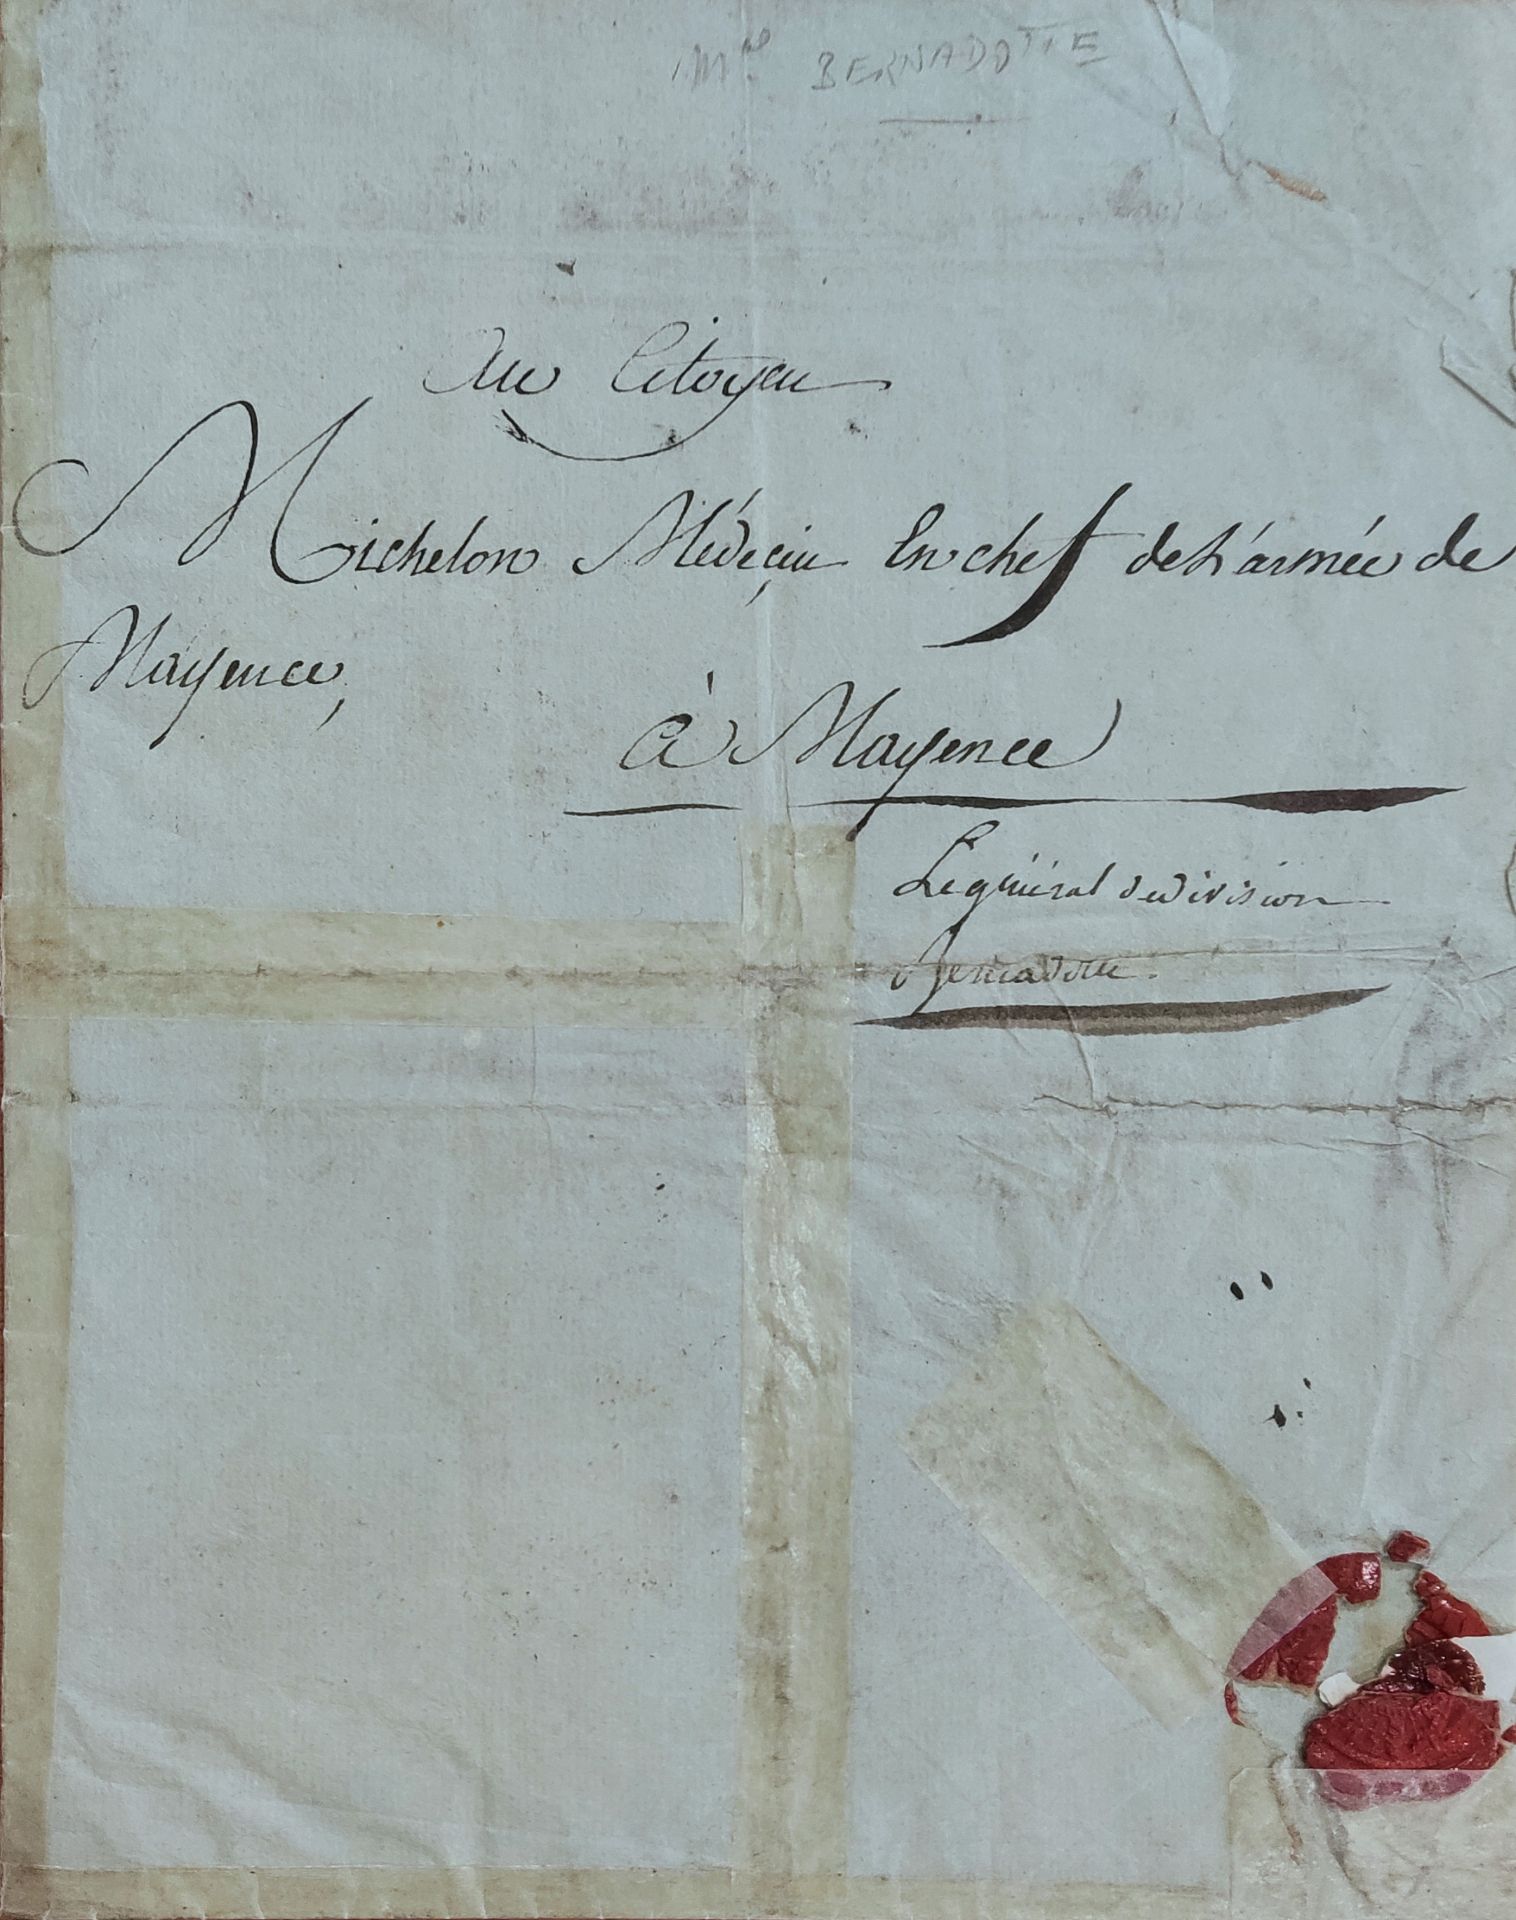 Mal BERNADOTTE
Au Citoyen
Michelon Médeçin En chef de L'armée de
Mayence,
à Mayence
Le général de division
Bernadotte.